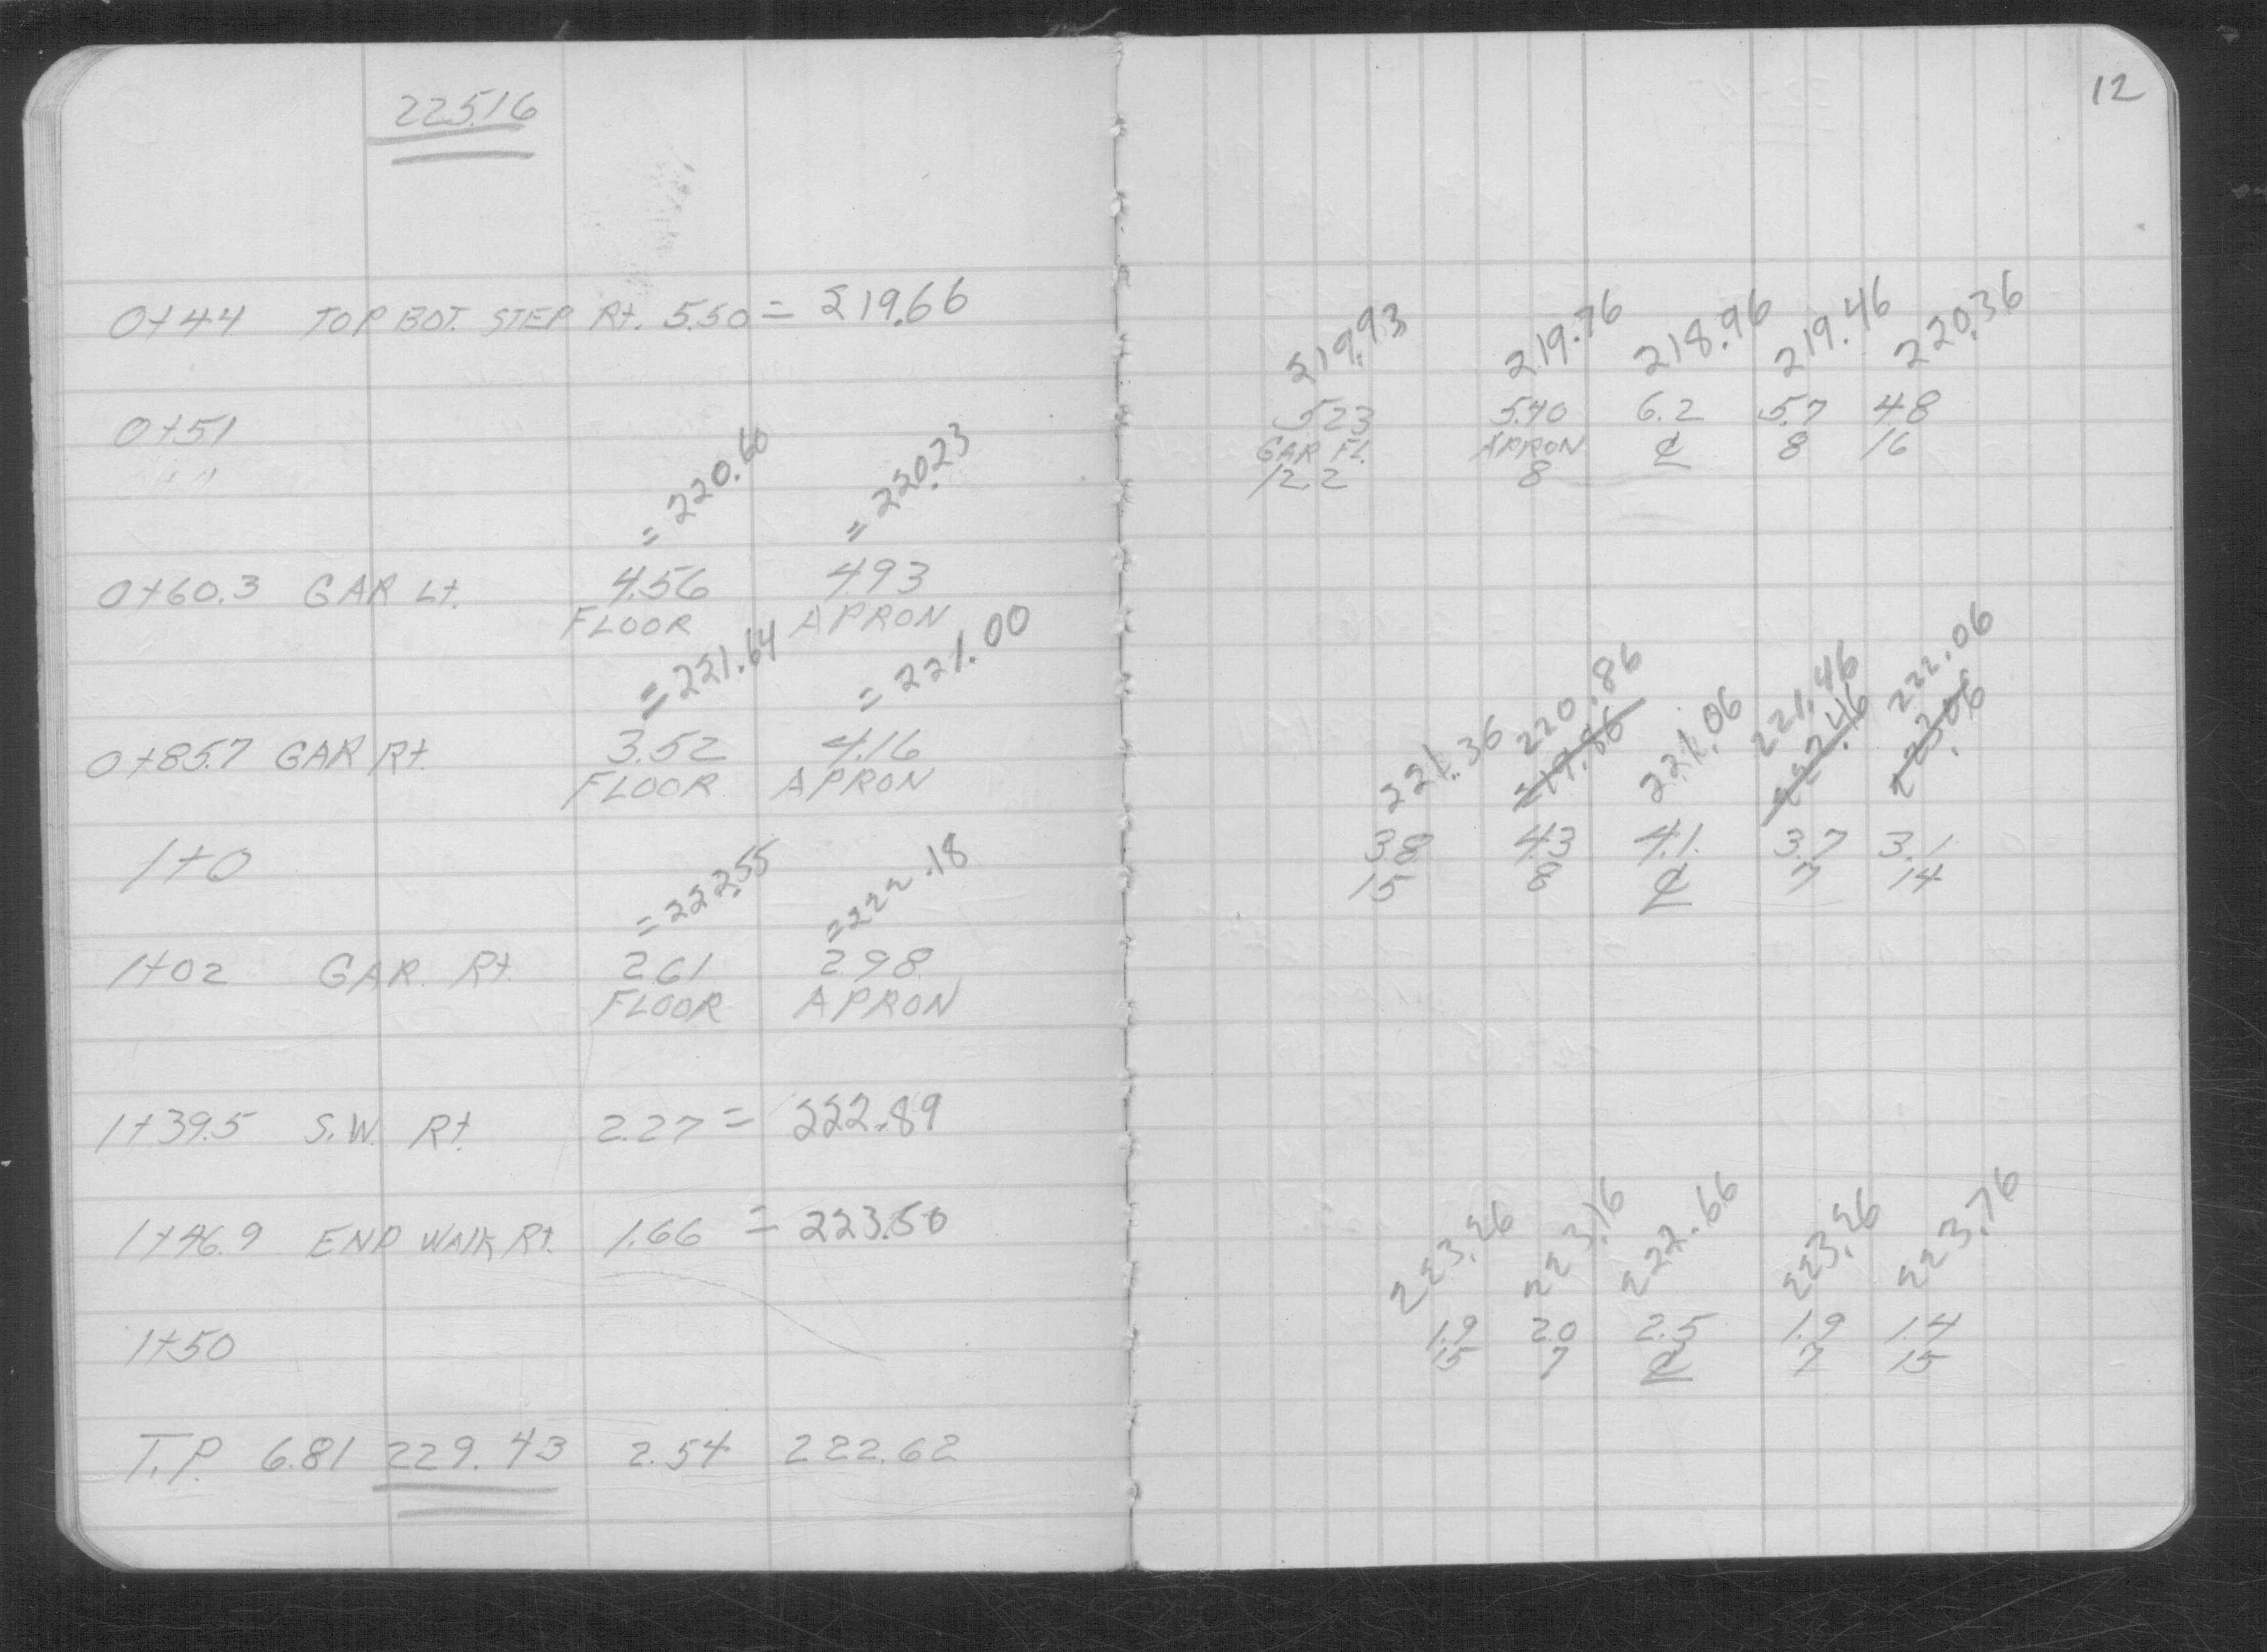 225.16
0+44 TOP BOT. STEP Rt. 5.50 = 219.66
0+51
= 220.60 = 220.23
0+60.3 GAR Lt. 4.56 4.93
FLOOR APRON
= 221.64 = 221.00
0+85.7 GAR Rt. 3.52 4.16
FLOOR APRON
1+0
= 222.55 = 222.18
1+02 GAR. Rt. 2.61 2.98
FLOOR APRON
1+39.5 S.W. Rt 2.27 = 222.89
1+46.9 END WALK Rt. 1.66 = 223.50
1+50
T.P. 6.81 229.43 2.54 222.62
12
219.93 219.76 218.96 219.46 220.36
5.23 5.40 6.2 5.7 4.8
GAR FL. APRON ℄ 8 16
12.2 8
221.36 220.86 221.06 221.46 222.06
219.86 222.46 223.06
3.8 4.3 4.1 3.7 3.1
15 8 ℄ 7 14
223.26 223.16 222.66 223.26 223.76
1.9 2.0 2.5 1.9 1.4
15 7 ℄ 7 15